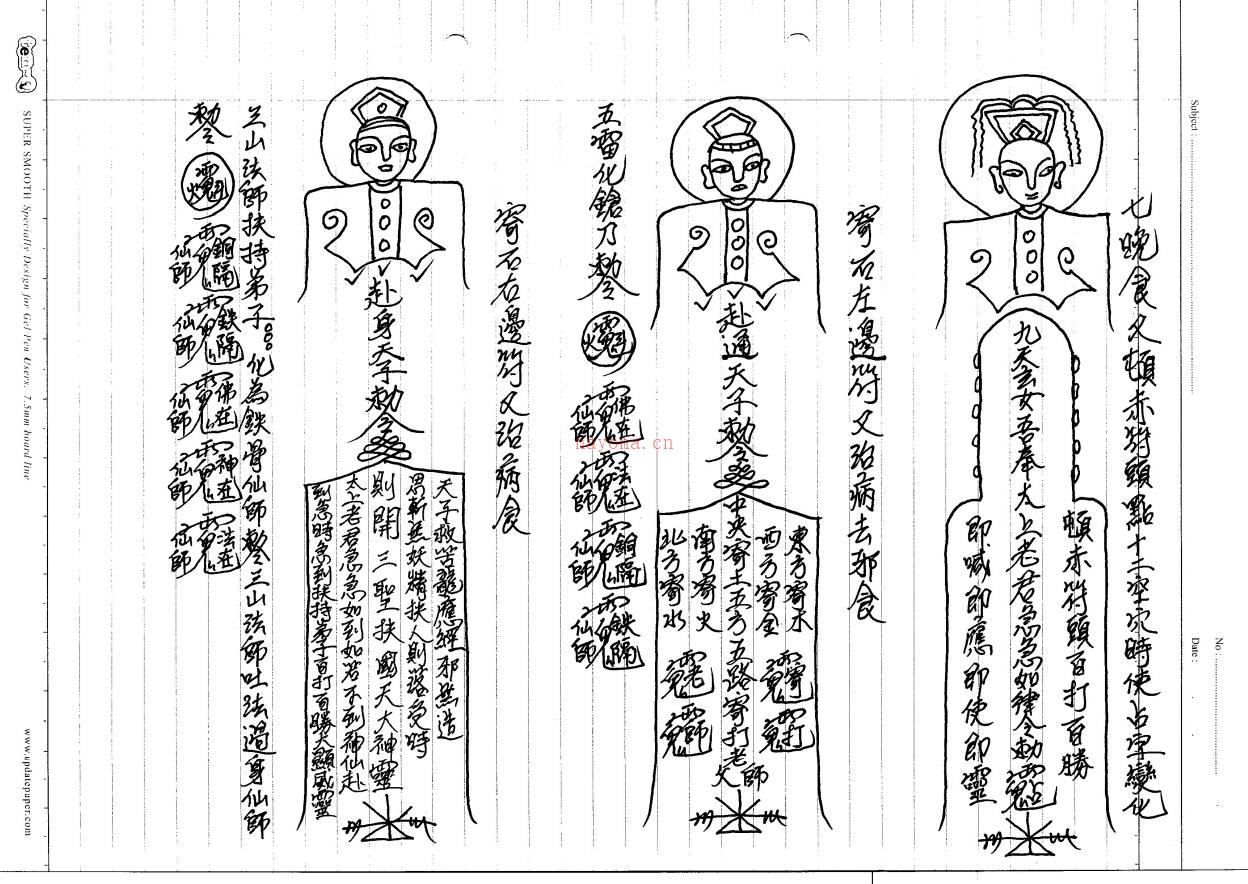 七晚食久頓赤符頭點十二空穴時使占字變化
頓赤符頭百打百勝
九天玄女吾奉太上老君急急如律令勅
即喊即應即使即靈
寄石左邊符又治病去邪食
赴通天子勅令
中央寄土五方五路寄打老師父
東方寄木
西方寄金
南方寄火
北方寄水
五雷化鎗乃勅令
佛在 仙師
法在 仙師
銅隔 仙師
鉄隔 仙師
寄石右邊符又治病食
赴身天子勅令
天子救苦龍應經邪然造
思斬然妖精扶人則落急時
則開三聖扶國天大神靈
太上老君急急如到如若不到神仙赴
到急時急到扶持弟子百打百勝大顯威靈
三山法師扶持弟子。。。化為鉄骨仙師勅令三山法師吐法過身仙師
勅令
銅隔 仙師
鉄隔 仙師
佛在 仙師
神在 仙師
法在 仙師
Subject :
No :
Date :
SUPER SMOOTH Specially Design for Gel Pen Users. 7.5mm board line
www.updatepaper.com
nayona.cn